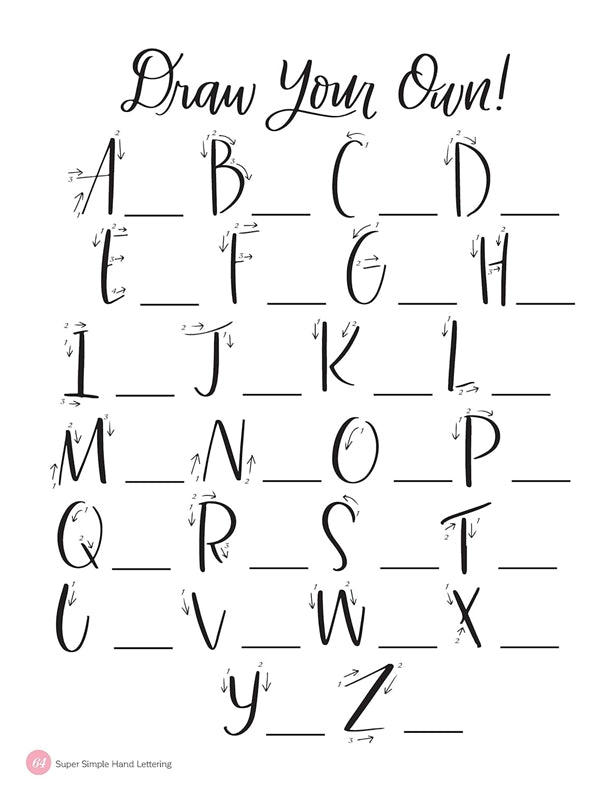 Draw Your Own!
A B C D
E F G H
I J K L
M N O P
Q R S T
U V W X
Y Z
64 Super Simple Hand Lettering